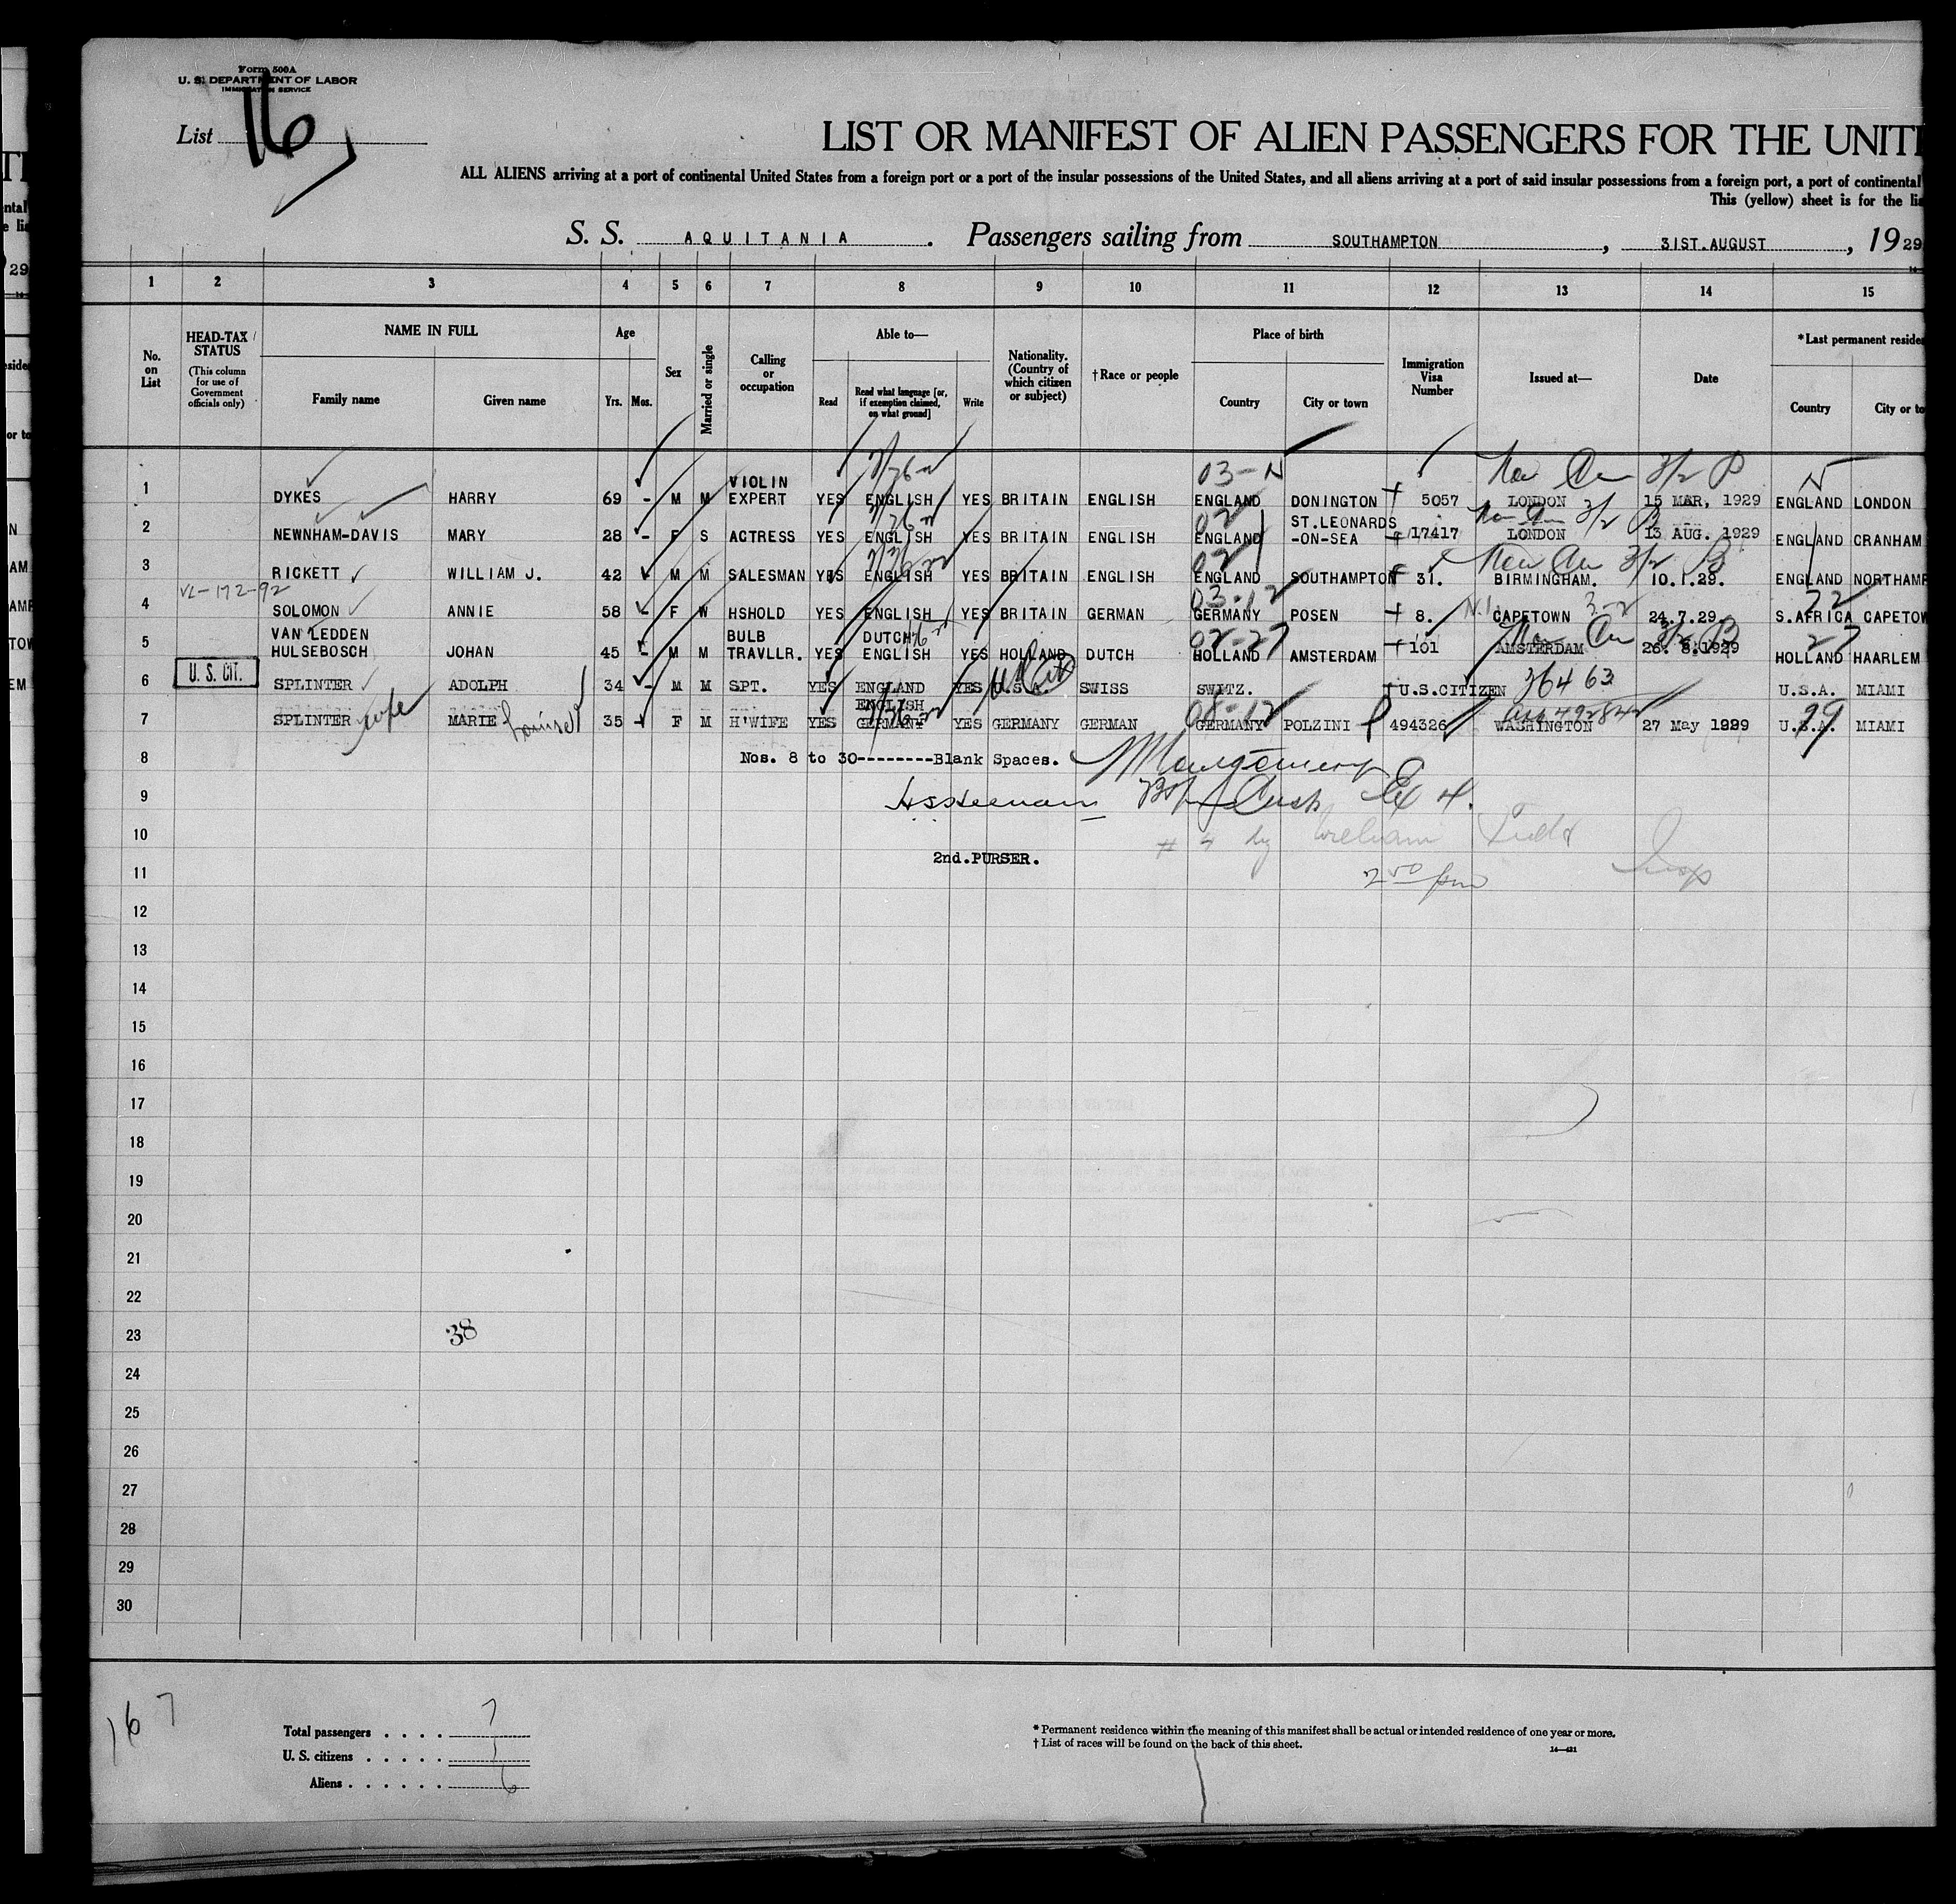 Form 500A
U. S. DEPARTMENT OF LABOR
IMMIGRATION SERVICE
List 16
LIST OR MANIFEST OF ALIEN PASSENGERS FOR THE UNIT
ALL ALIENS arriving at a port of continental United States from a foreign port or a port of the insular possessions of the United States, and all aliens arriving at a port of said insular possessions from a foreign port, a port of continental
This (yellow) sheet is for the lis
S. S. AQUITANIA. Passengers sailing from SOUTHAMPTON, 31ST.AUGUST, 1929
1 2 3 4 5 6 7 8 9 10 11 12 13 14 15
No. on List
HEAD-TAX STATUS (This column for use of Government officials only)
NAME IN FULL
Family name Given name
Age
Yrs. Mos.
Sex
Married or single
Calling or occupation
Able to—
Read Read what language [or, if exemption claimed, on what ground] Write
Nationality. (Country of which citizen or subject)
†Race or people
Place of birth
Country City or town
Immigration Visa Number
Issued at—
Date
*Last permanent reside
Country City or to
03-N
1 DYKES HARRY 69 - M M VIOLIN EXPERT YES ENGLISH YES BRITAIN ENGLISH ENGLAND DONINGTON 5057 LONDON 15 MAR, 1929 ENGLAND LONDON
02
2 NEWNHAM-DAVIS MARY 28 - F S ACTRESS YES ENGLISH YES BRITAIN ENGLISH ENGLAND ST.LEONARDS -ON-SEA 17417 LONDON 13 AUG. 1929 ENGLAND CRANHAM
02
3 RICKETT WILLIAM J. 42 M M SALESMAN YES ENGLISH YES BRITAIN ENGLISH ENGLAND SOUTHAMPTON 31. BIRMINGHAM. 10.1.29. ENGLAND NORTHAMP
VL-172-92 03-12
4 SOLOMON ANNIE 58 - F W HSHOLD YES ENGLISH YES BRITAIN GERMAN GERMANY POSEN 8. N.I. CAPETOWN 3-2 24.7.29. S.AFRICA CAPETOW
02-27 27
5 VAN LEDDEN HULSEBOSCH JOHAN 45 - M M BULB TRAVLLR. YES DUTCH ENGLISH YES HOLLAND DUTCH HOLLAND AMSTERDAM 101 AMSTERDAM 26. 8.1929 HOLLAND HAARLEM
6 U. S. CIT. SPLINTER ADOLPH 34 - M M SPT. YES ENGLAND YES U.S.A. SWISS SWITZ. U.S.CITIZEN 36463 U.S.A. MIAMI
08-12 99
7 SPLINTER wife MARIE Louise 35 F M H'WIFE YES ENGLISH GERMANY YES GERMANY GERMAN GERMANY POLZINI 494326 WASHINGTON 27 May 1929 U.S.A. MIAMI
8 Nos. 8 to 30--------Blank Spaces. Montgomery
9
10 # 4 by William
2nd.PURSER.
11 2 50 pm Insp
12
13
14
15
16
17
18
19
20
21
22
23 38
24
25
26
27
28
29
30
16 7
Total passengers . . . . 7
U. S. citizens . . . . . 1
Aliens . . . . . . 6
* Permanent residence within the meaning of this manifest shall be actual or intended residence of one year or more.
† List of races will be found on the back of this sheet.